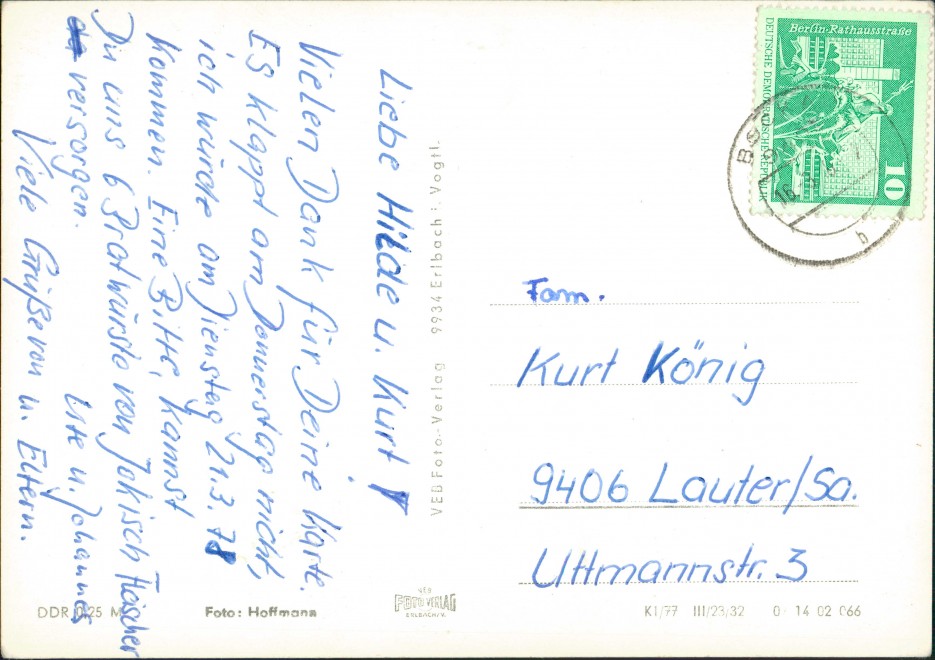 Liebe Hilde u. Kurt!
Vielen Dank für Deine Karte.
Es klappt am Donnerstag nicht,
ich würde am Dienstag 21.3.78
kommen. Eine Bitte, kannst
Du uns 6 Bratwürste von Jokisch Fleischer
versorgen.
Viele Grüße von u. Eltern.
Ute u. Johannes
VEB Foto-Verlag 9934 Erlbach i. Vogtl.
DDR 0,25 M
Foto: Hoffmann
VEB
FOTO VERLAG
ERLBACH/V.
Berlin-Rathausstraße
DEUTSCHE DEMOKRATISCHE REPUBLIK
10
b
Fam.
Kurt König
9406 Lauter/Sa.
Uttmannstr. 3
K1/77 III/23/32 0 14 02 066